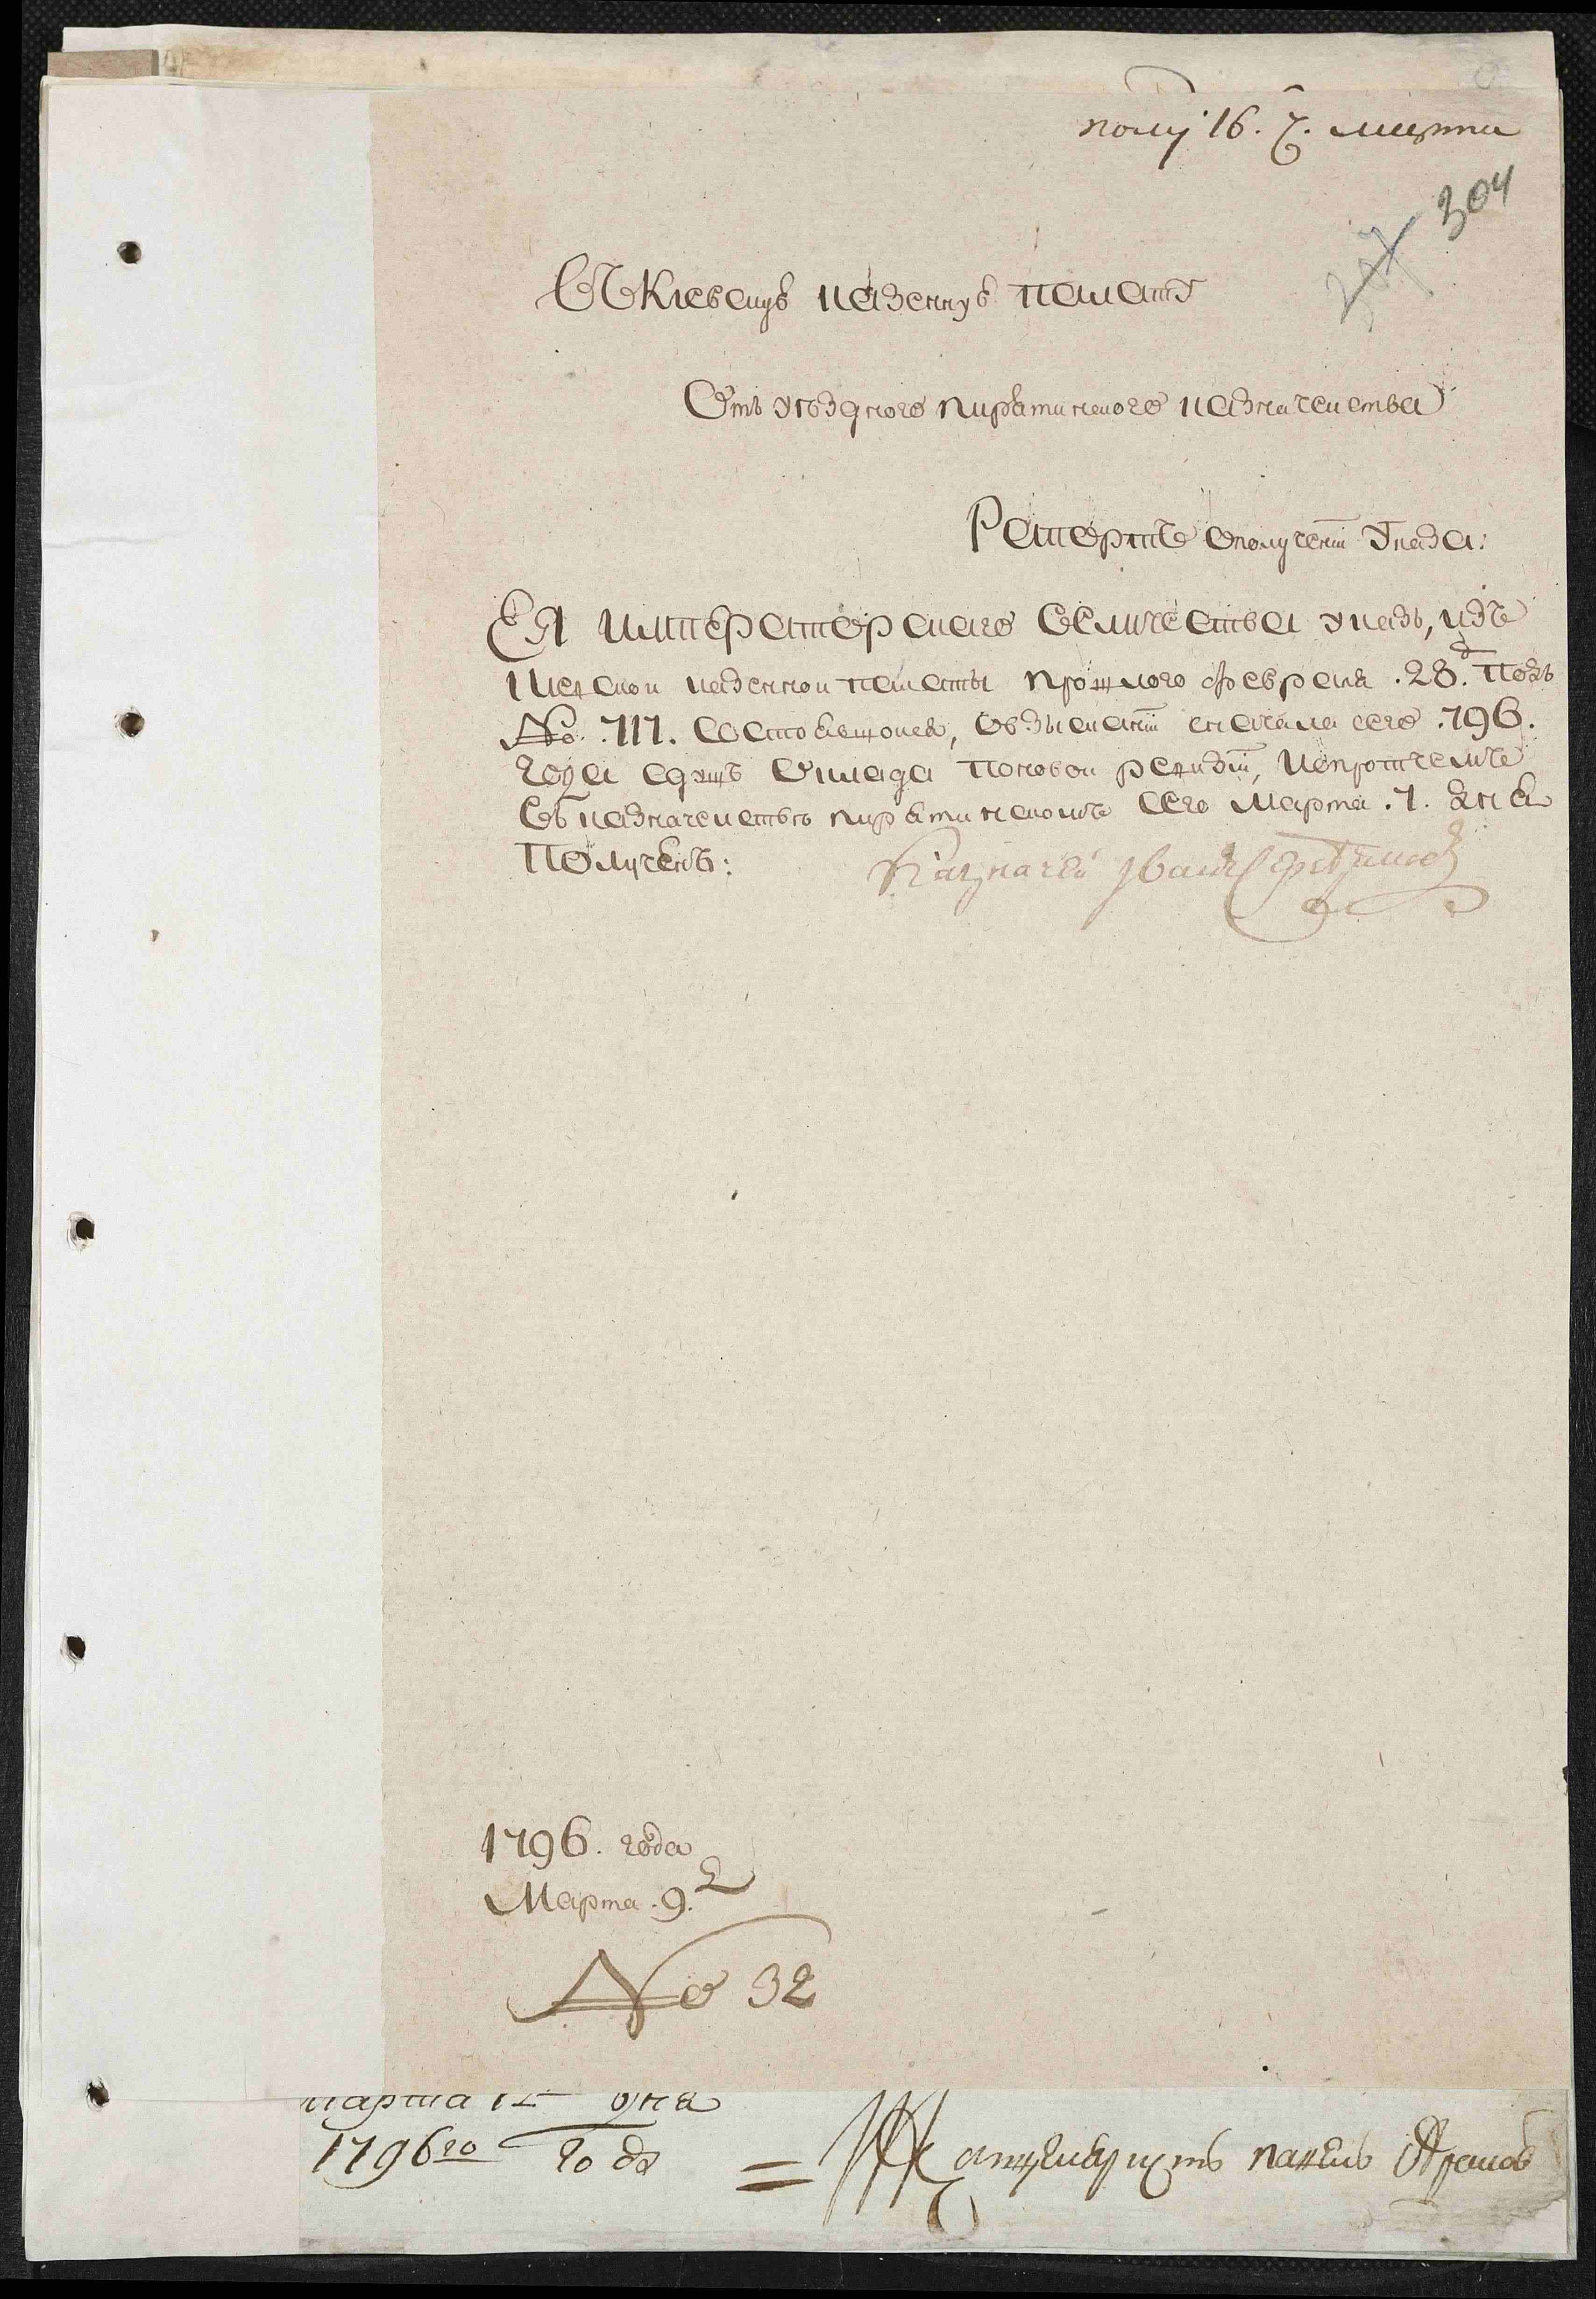 полу: 16. ч. марта
304
307
Въ Киевскую казенную палату
Отъ уѣздного пирятинского казначейства
Рапортъ ополученіи Указа:
Ея императорскаго величества указъ, изъ
казенной палаты прошлого февраля .28.д подъ
№ .711. состоявшойся, овзысканіи сначала сего .796.
года оклада поновой ревизіи, ипротчемъ
въ казначействѣ пирятинскомъ сего марта .7. дня
получень:
Казначей Иванъ
1796. года
Марта .9. д
№ 32
марта 12 дня
1796го года
= Канцеляристъ